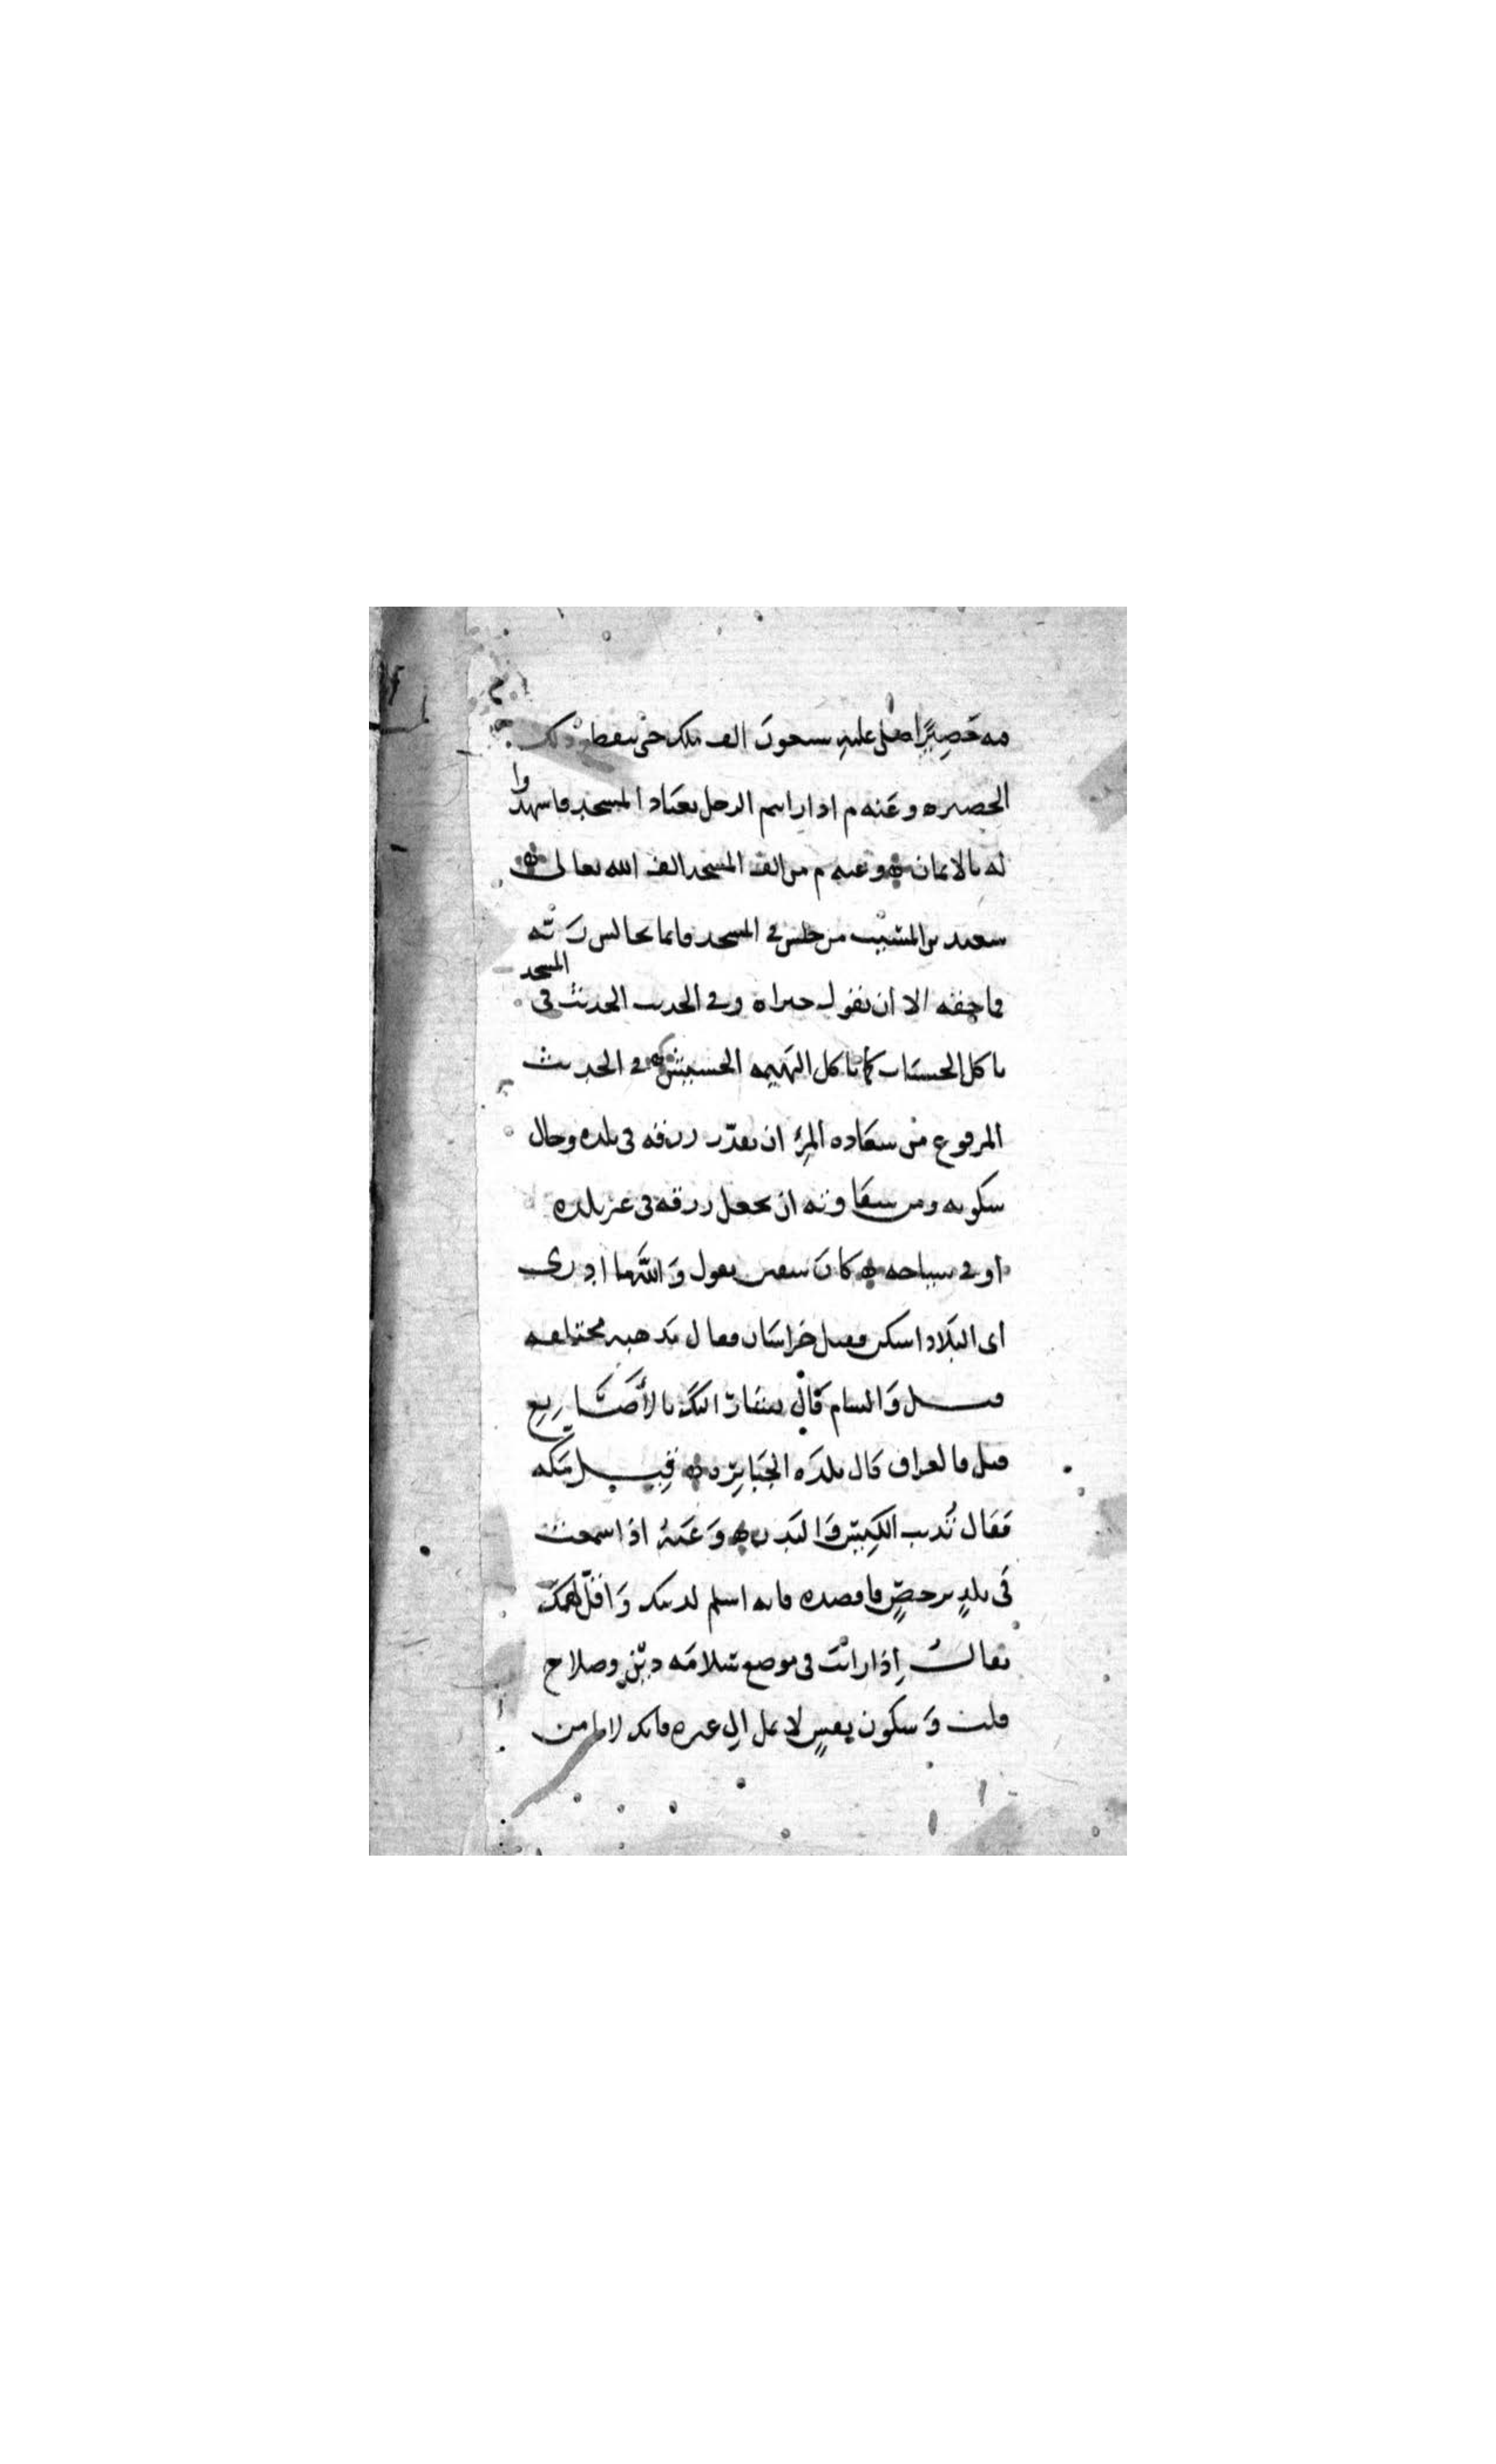 فيه حَصِيرًا صلى عليه سبعون الف ملك حتى ينقطع ذلك
الحصيره وعنه م اذا رايتم الرجل يعتاد المسجد فاشهدوا
له بالايمان وعنه م من الف المسجد الفه الله تعالى
سعيد بن المسيب من جلس في المسجد فانما يجالس رَبّه
فما حقه الا ان يقول خيرا ه وفي الحديث الحديث في المسجد
ياكل الحسنات كما ياكل البهيمه الحشيش وفي الحديث
المرفوع من سعاده المرْء ان يقدّر رزقه في بلده وحال
سكونه ومن سقاوته ان يجعل رزقه في غير بلده
او في سياحه كانَ سفين يقول وَاللّهِ ما ادري
اى البلاد اسكن فقيل خراسان فقال مذهبيه مختلفه
قيل وَالشام قَال يشار اليكَ بالأصَابِع
قيل فالعراق قال بلدَه الجَبَابِرَه قِيل مَكه
فَقال تُذيب الكِيسَ وَالبَدن وَعَنهُ اذا سمعت
في بلدٍ برخصٍ فاقصده فانه اسلم لدينك وَاقلّ لهمّك
يقالُ إذا رايت في موضع سَلامَه دِين وصلاح
قلب وَسكون نفسٍ لا تمل الى غيره فانك لا تامن